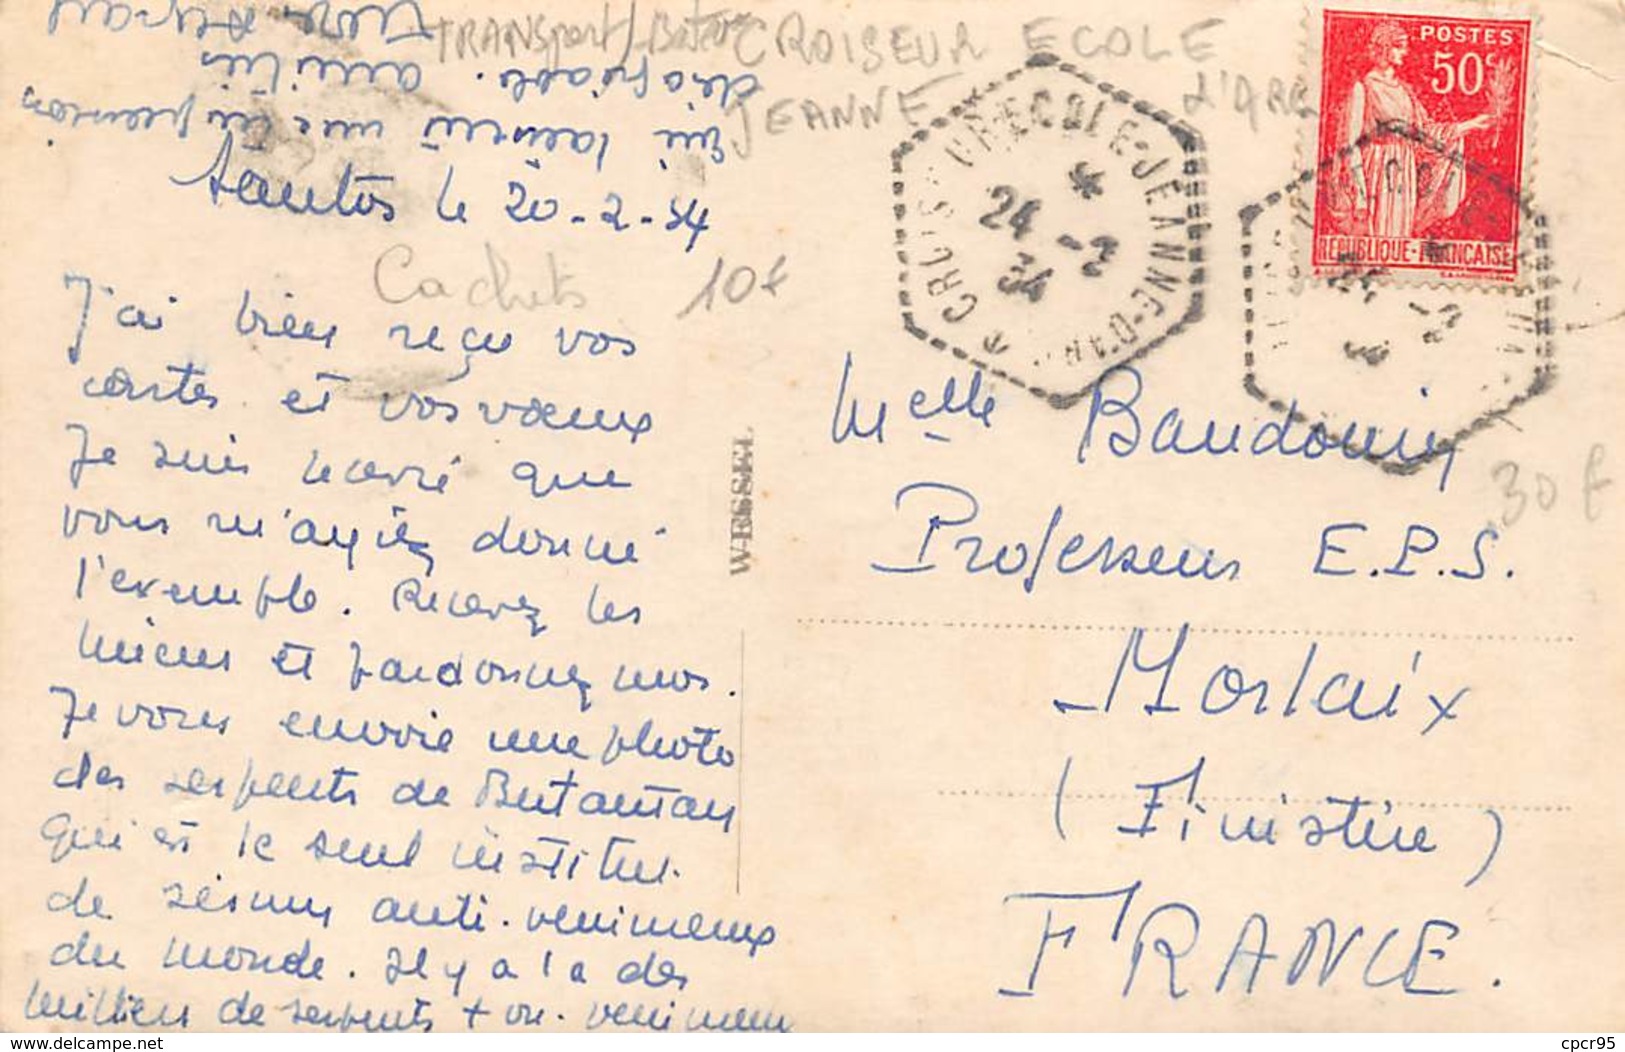 TRANSport/Bateau CROISEUR ECOLE
JEANNE d'ARC
Santos le 20-2-34
Cachets 10€
J'ai bien reçu vos
cartes et vos vœux
Je suis navré que
vous m'ayiez donné
l'exemple. Recevez les
miens et pardonnez moi.
Je vous envoie une photo
des serpents de Butantan
qui est le seul institut
de sérums anti-venimeux
du monde. Il y a là des
milliers de serpents + ou - venimeux
qui laissent une
désagréable. amitiés
WESSEL
CROISEUR-ECOLE-JEANNE-D'ARC
24 -2
34
POSTES
50c
REPUBLIQUE-FRANCAISE
Melle Baudouin
30 €
Professeur E.P.S.
Morlaix
(Finistère)
FRANCE.
www.delcampe.net
cpcr95